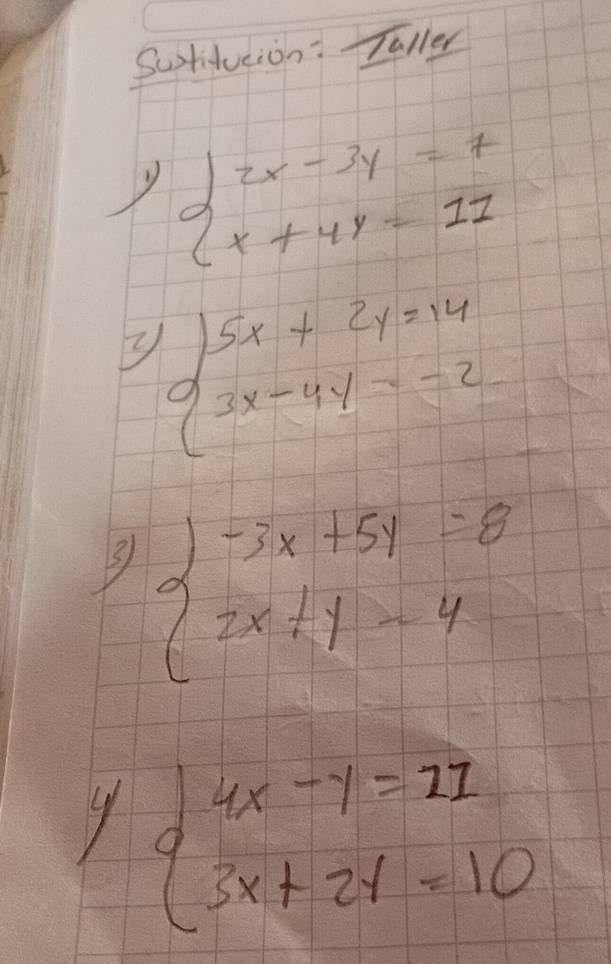 Sustitución: Taller
1) { 2x - 3y = 7
x + 4y = 11
2) { 5x + 2y = 14
3x - 4y = -2
3) { -3x + 5y = 8
2x + y = 4
4) { 4x - y = 11
3x + 2y = 10